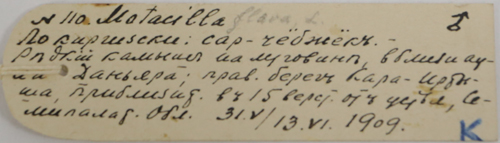 N по Motacilla flava, L. ♂
По киргизски: сар-чёбжёкъ. -
Рѣдкій камышъ на луговинѣ, вблизи ау-
ла Даньяра; прав. берегъ Кара-Ирты-
ша, приблизит. въ 15 верст. отъ устья, Се-
мипалат. Обл. 31.V/13.VI. 1909.
К